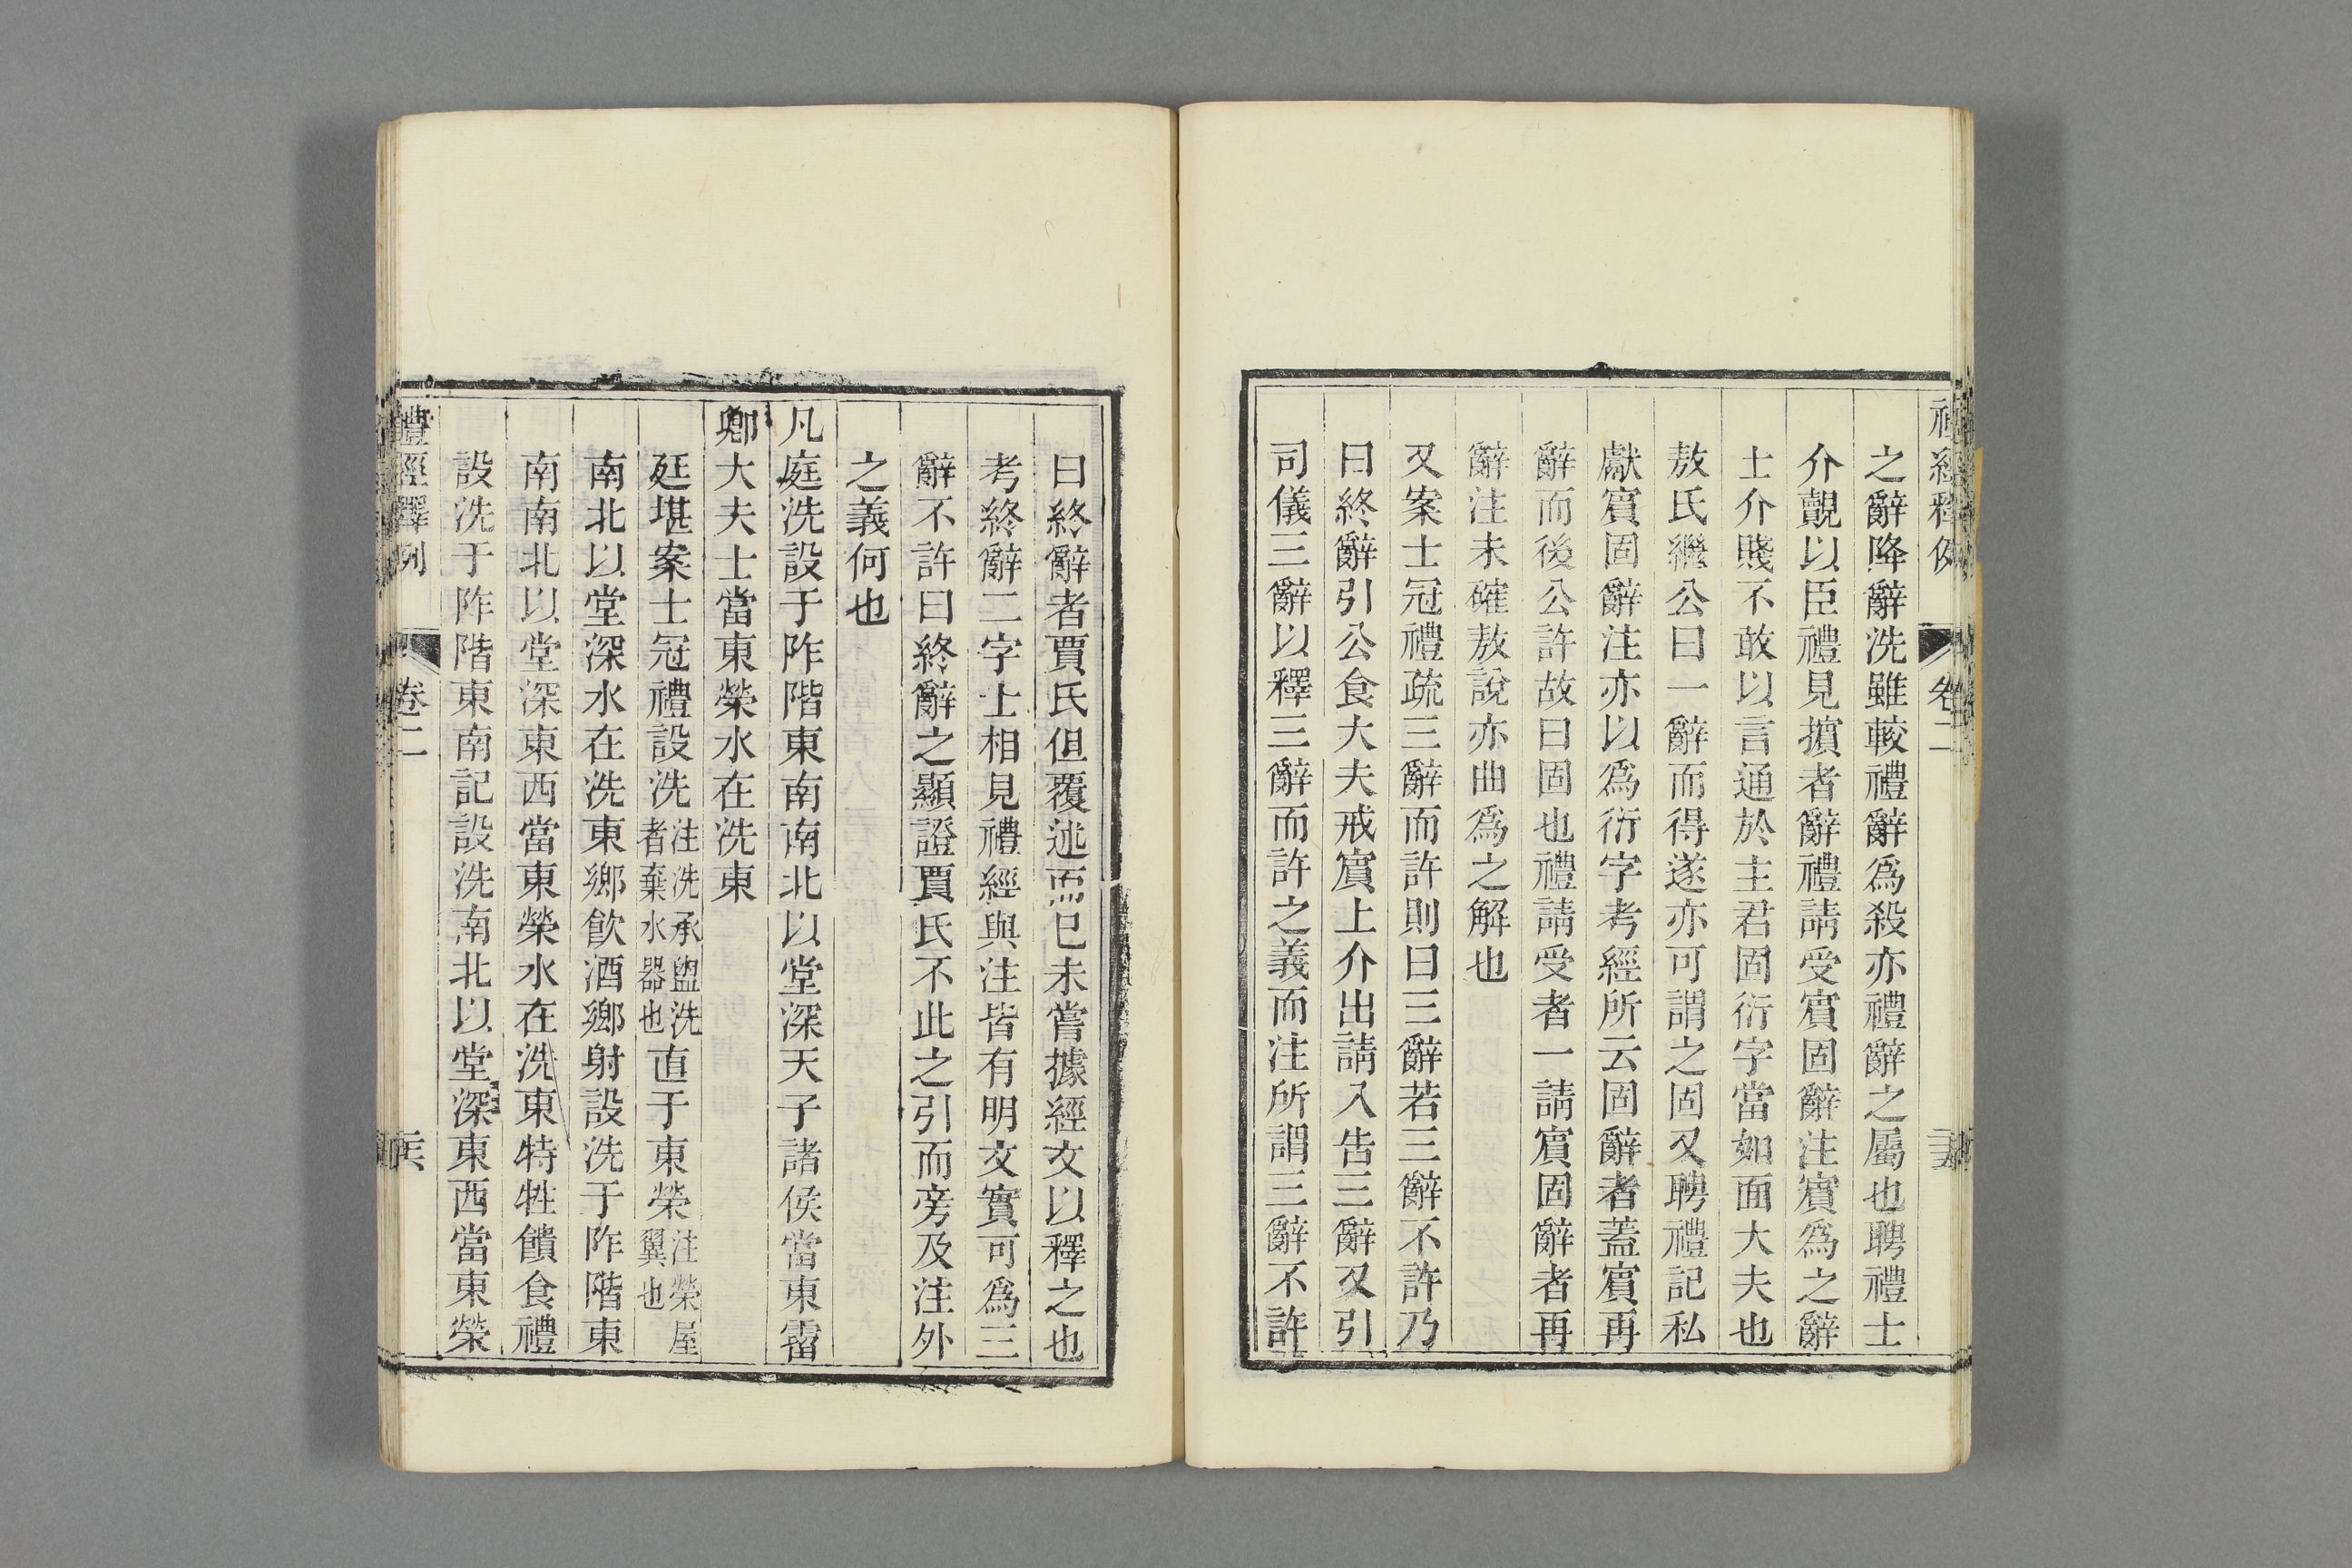 禮經釋例 卷二
之辭降辭洗雖較禮辭爲殺亦禮辭之屬也聘禮士
介覿以臣禮見擯者辭禮請受賔固辭注賔爲之辭
士介賤不敢以言通於主君固衍字當如面大夫也
敖氏繼公曰一辭而得遂亦可謂之固又聘禮記私
獻賔固辭注亦以爲衍字考經所云固辭者蓋賔再
辭而後公許故曰固也禮請受者一請賔固辭者再
辭注未確敖說亦曲爲之解也
又案士冠禮疏三辭而許則曰三辭若三辭不許乃
曰終辭引公食大夫戒賔上介出請入告三辭又引
司儀三辭以釋三辭而許之義而注所謂三辭不許
曰終辭者賈氏但覆述而已未嘗據經文以釋之也
考終辭二字士相見禮經與注皆有明文實可爲三
辭不許曰終辭之顯證賈氏不此之引而旁及注外
之義何也
凡庭洗設于阼階東南南北以堂深天子諸侯當東霤
卿大夫士當東榮水在洗東
廷堪案士冠禮設洗注洗承盥洗者棄水器也直于東榮注榮屋翼也
南北以堂深水在洗東鄉飲酒鄉射設洗于阼階東
南南北以堂深東西當東榮水在洗東特牲饋食禮
設洗于阼階東南記設洗南北以堂深東西當東榮
禮經釋例 卷二